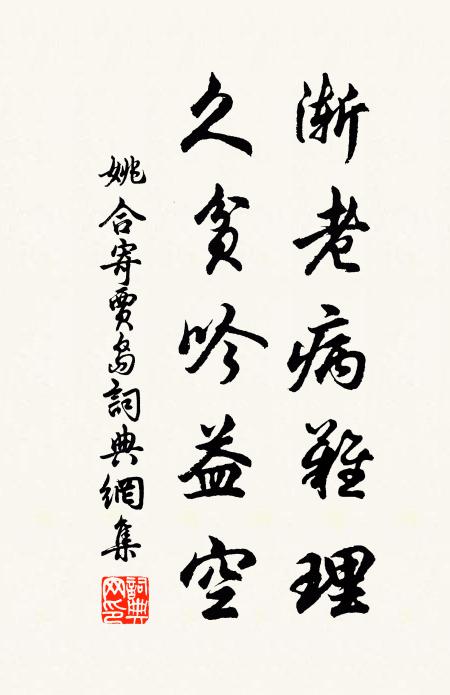 漸老病難理
久貧吟益空
姚合寄賈島詞典網集
詞典
网印